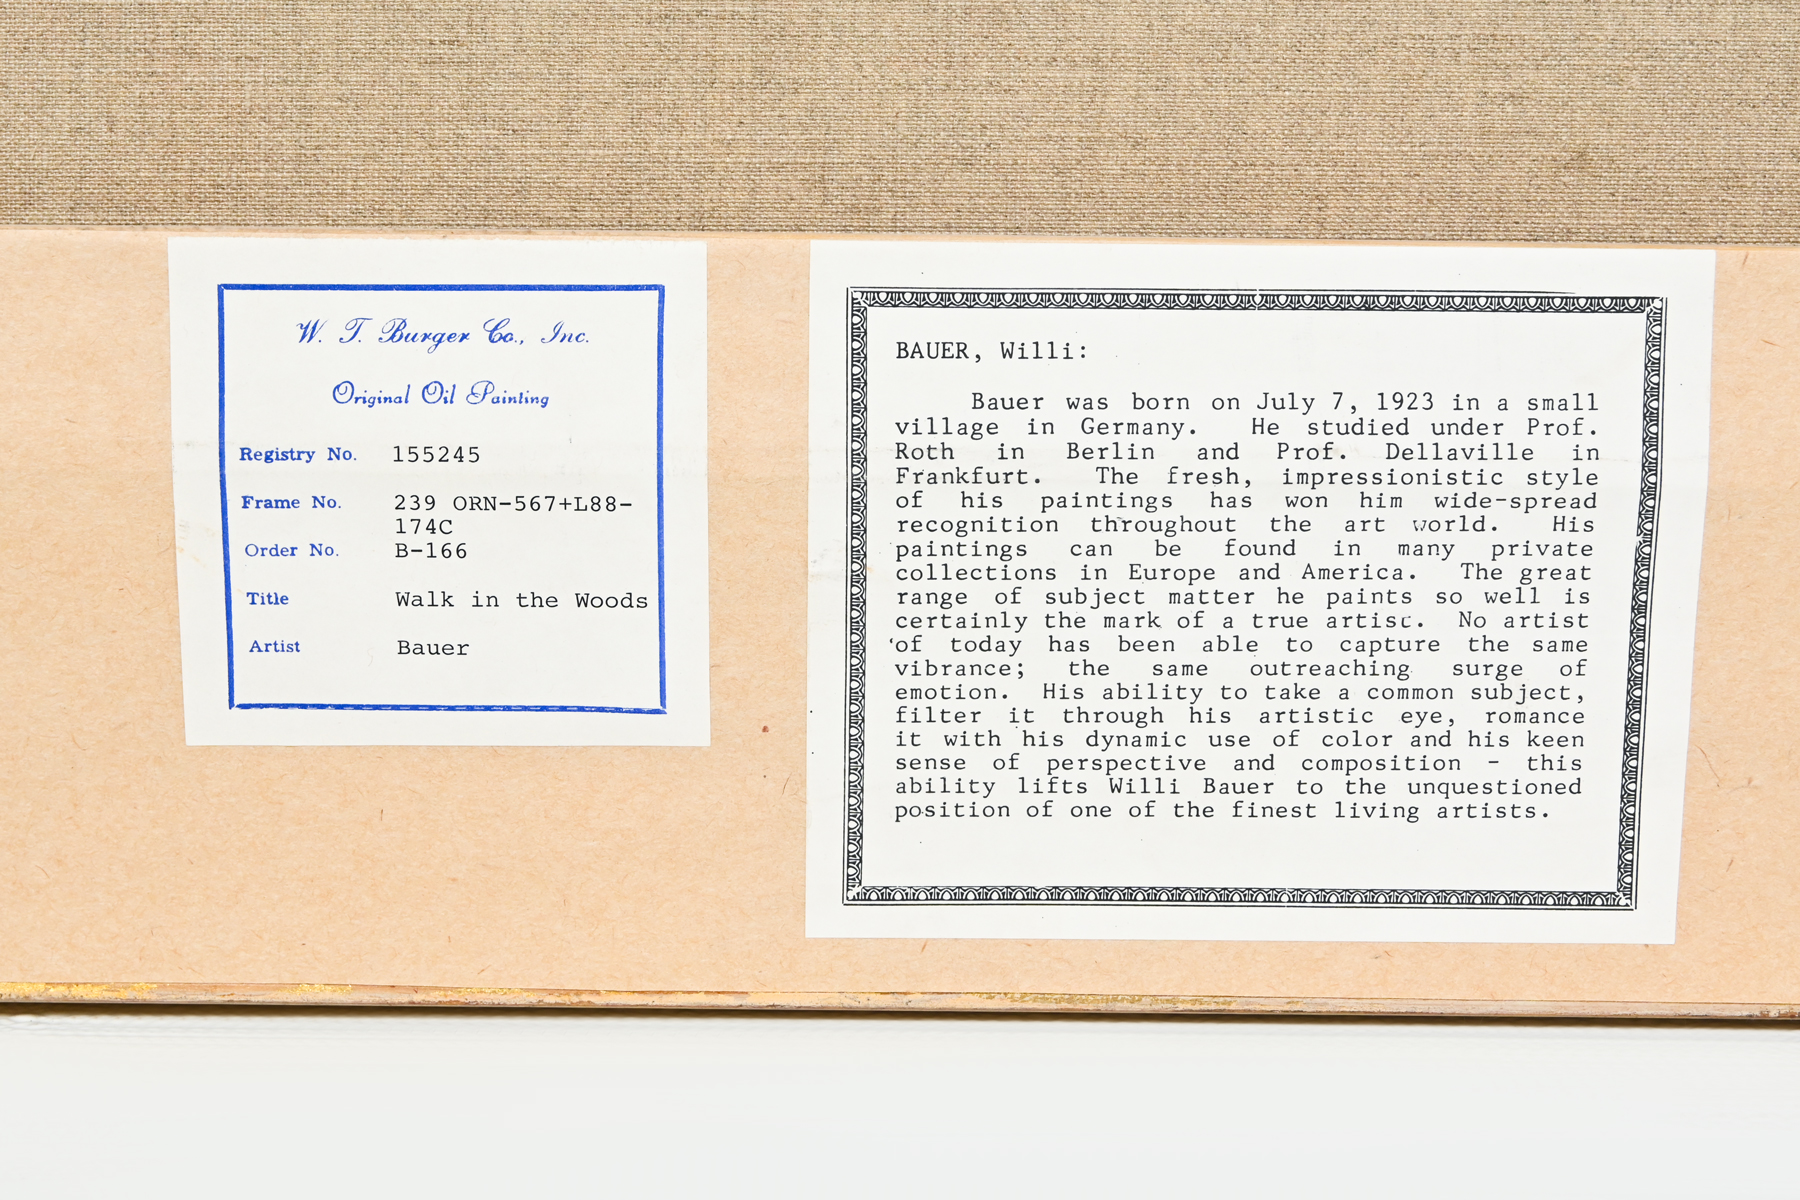 W. T. Burger Co., Inc.
Original Oil Painting
Registry No. 155245
Frame No. 239 ORN-567+L88-
174C
Order No. B-166
Title Walk in the Woods
Artist Bauer
BAUER, Willi:
Bauer was born on July 7, 1923 in a small
village in Germany. He studied under Prof.
Roth in Berlin and Prof. Dellaville in
Frankfurt. The fresh, impressionistic style
of his paintings has won him wide-spread
recognition throughout the art world. His
paintings can be found in many private
collections in Europe and America. The great
range of subject matter he paints so well is
certainly the mark of a true artist. No artist
of today has been able to capture the same
vibrance; the same outreaching surge of
emotion. His ability to take a common subject,
filter it through his artistic eye, romance
it with his dynamic use of color and his keen
sense of perspective and composition - this
ability lifts Willi Bauer to the unquestioned
position of one of the finest living artists.